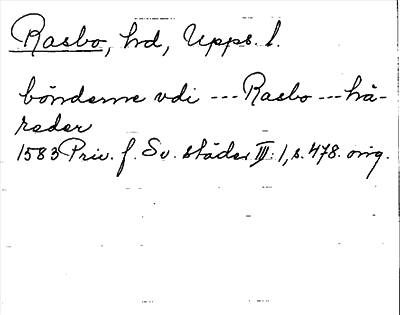 Rasbo, hd, Upps. l.
bönderne vdi --- Rasbo --- hä-
reder
1583 Priv. f. Sv. städer III: 1, s. 478. orig.